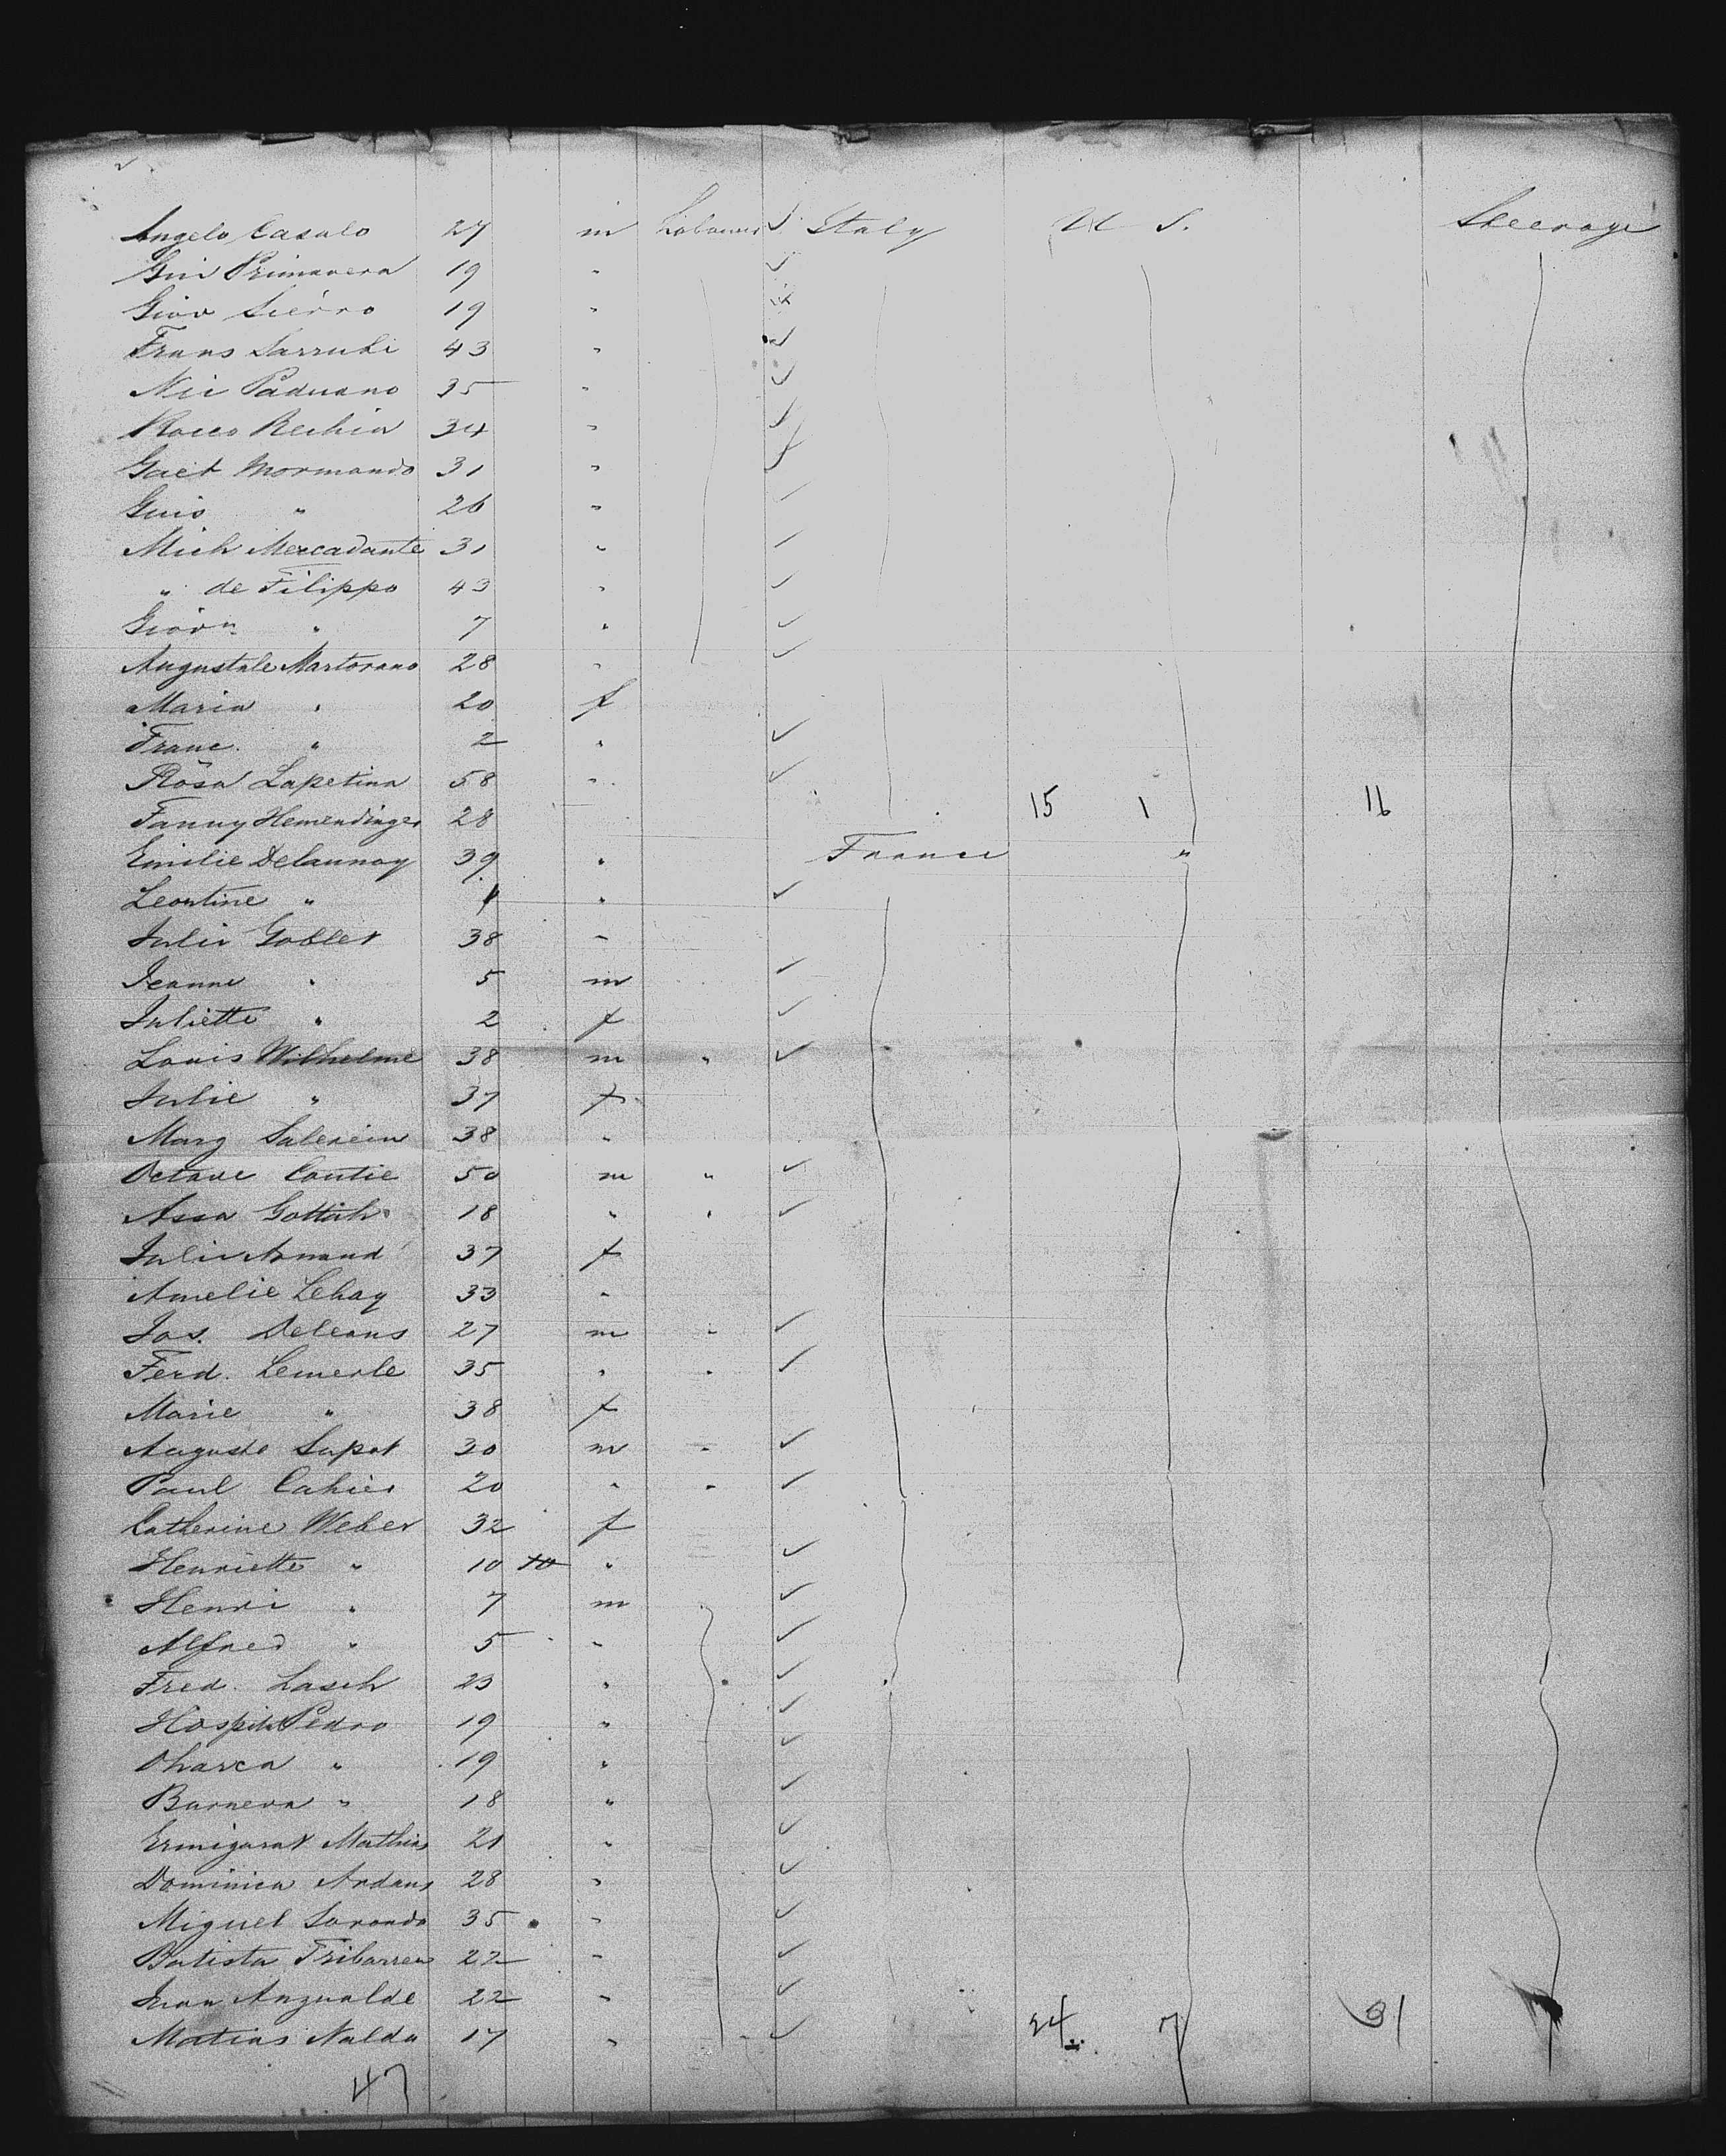 Angelo Casalo 27 m Labourer Italy U S. Steerage
Giu Primavera 19 "
Giov Sierro 19 "
Frans Sarrubi 43 "
Nic Paduano 35 "
Rocco Rechia 34 "
Gaet Mormando 31 "
Guis " 26 "
Mich Mercadante 31 "
" de Filippo 43 "
Giovn " 7 "
Augustale Martorano 28 "
Maria " 20 f
Franc. " 2 "
Rosa Lapetina 58 "
Fanny Hemendinger 28 15 1 16
Emilie Delaunay 39 " France "
Leontine " "
Julie Gobler 38 "
Jeanne " 5 m
Juliette " 2 f
Louis Wilhelme 38 m "
Julie " 37 f
Marg 38 "
Octave Contie 50 m "
Assa Gottich 18 " "
Julie Armand 37 f
Amelie Lehay 33 "
Jos. Deleans 27 m "
Ferd. Lemerle 35 " "
Marie " 38 f
Auguste Supot 30 m "
Paul Cahier 20 " "
Catherine Weber 32 f
Henriette " 10 10 "
Henri " 7 m
Alfred " 5 "
Fred. Lasch 23 "
Hospital Pedro 19 "
Oharca " 19 "
Barnera " 18 "
Ermigarat Mathias 21 "
Dominica Ardans 28 "
Miguel Sorondo 35 "
Batista Tribarren 22 "
Juan Anzualde 22 "
Matias Nalda 17 " 24 7 31
47